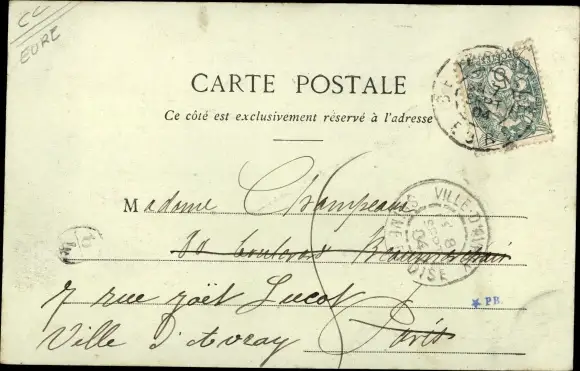 CC
EURE
CARTE POSTALE
Ce côté est exclusivement réservé à l'adresse
Madame Champeaux
boulevard Beaumarchais
7 rue Yoët Lucot
Ville d'Avray Paris
VILLE-D'AVRAY
SEINE ET OISE
04
EURE
★ PB.